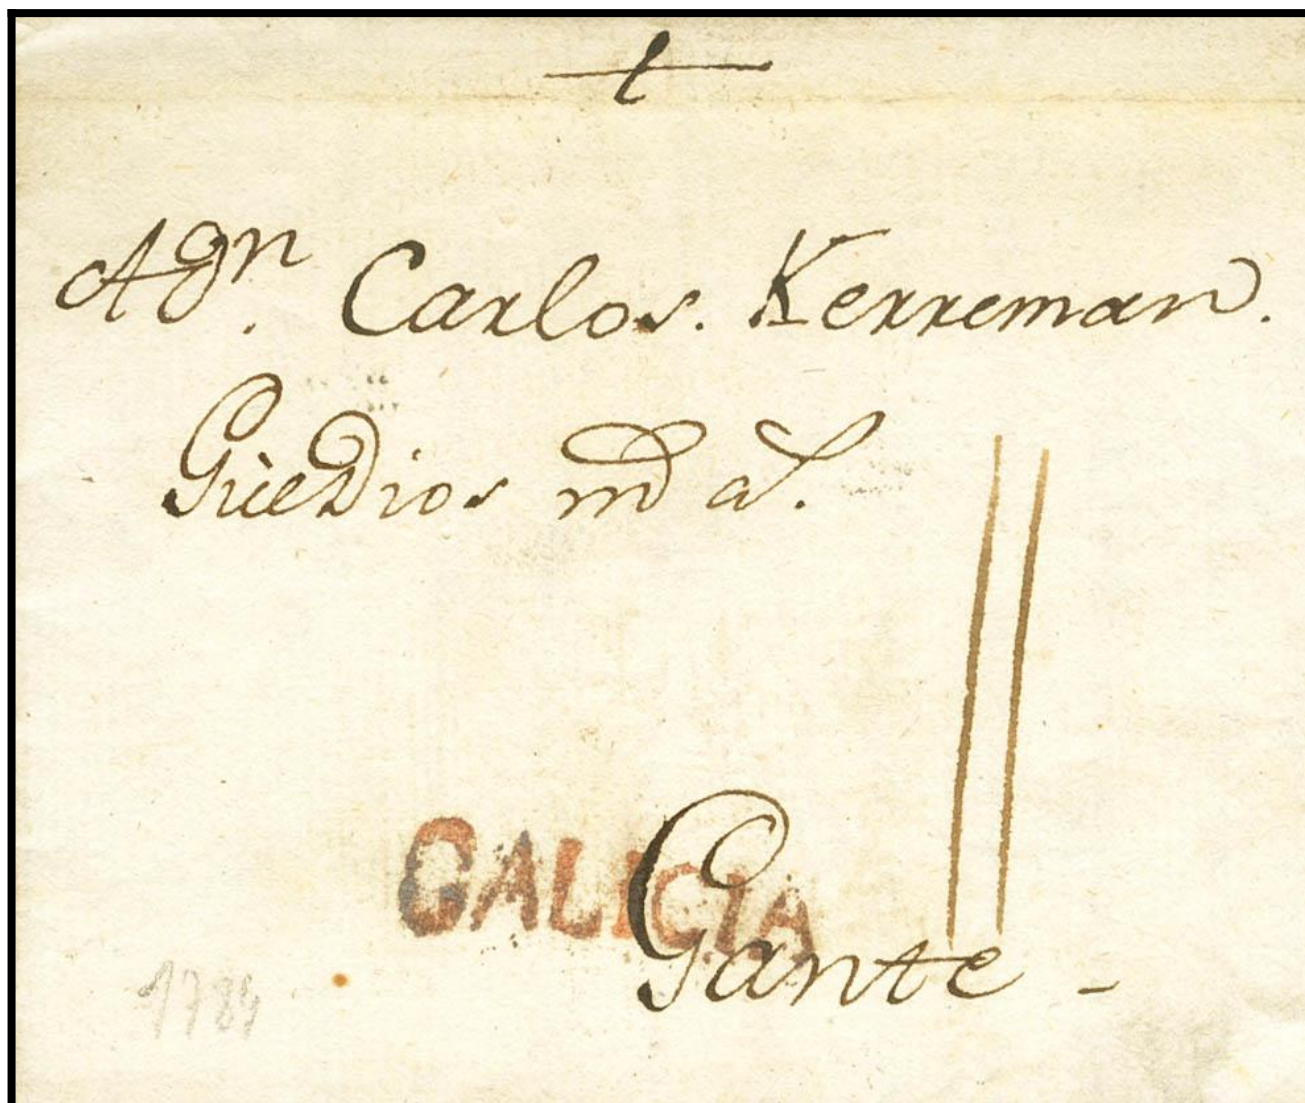 t
A Dn. Carlos. Kerreman.
GùeDios md as.
GALICIA
Gante -
1784